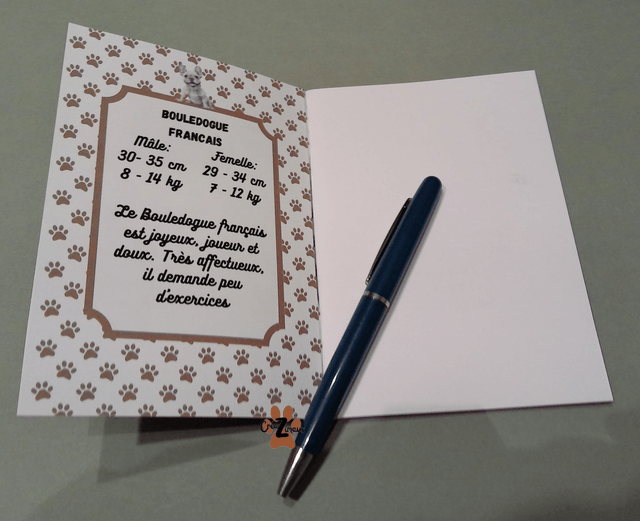 BOULEDOGUE
FRANCAIS
Mâle: Femelle:
30- 35 cm 29 - 34 cm
8 - 14 kg 7 - 12 kg
Le Bouledogue français
est joyeux, joueur et
doux. Très affectueux,
il demande peu
d'exercices